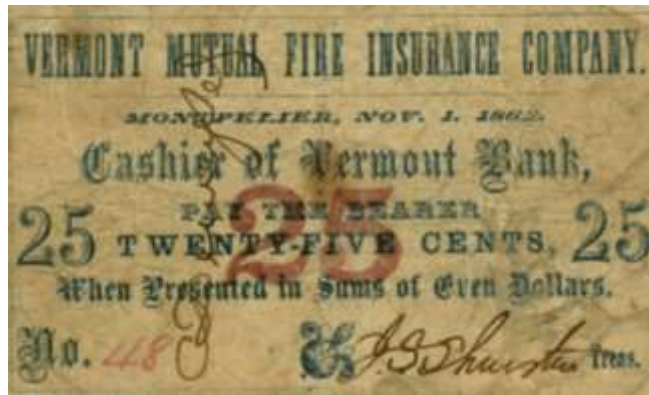 VERMONT MUTUAL FIRE INSURANCE COMPANY.
MONTPELIER, NOV. 1. 1862.
Cashier of Vermont Bank,
PAY THE BEARER
25 TWENTY-FIVE CENTS, 25
25
When Presented in Sums of Even Dollars.
No. 48 Treas.